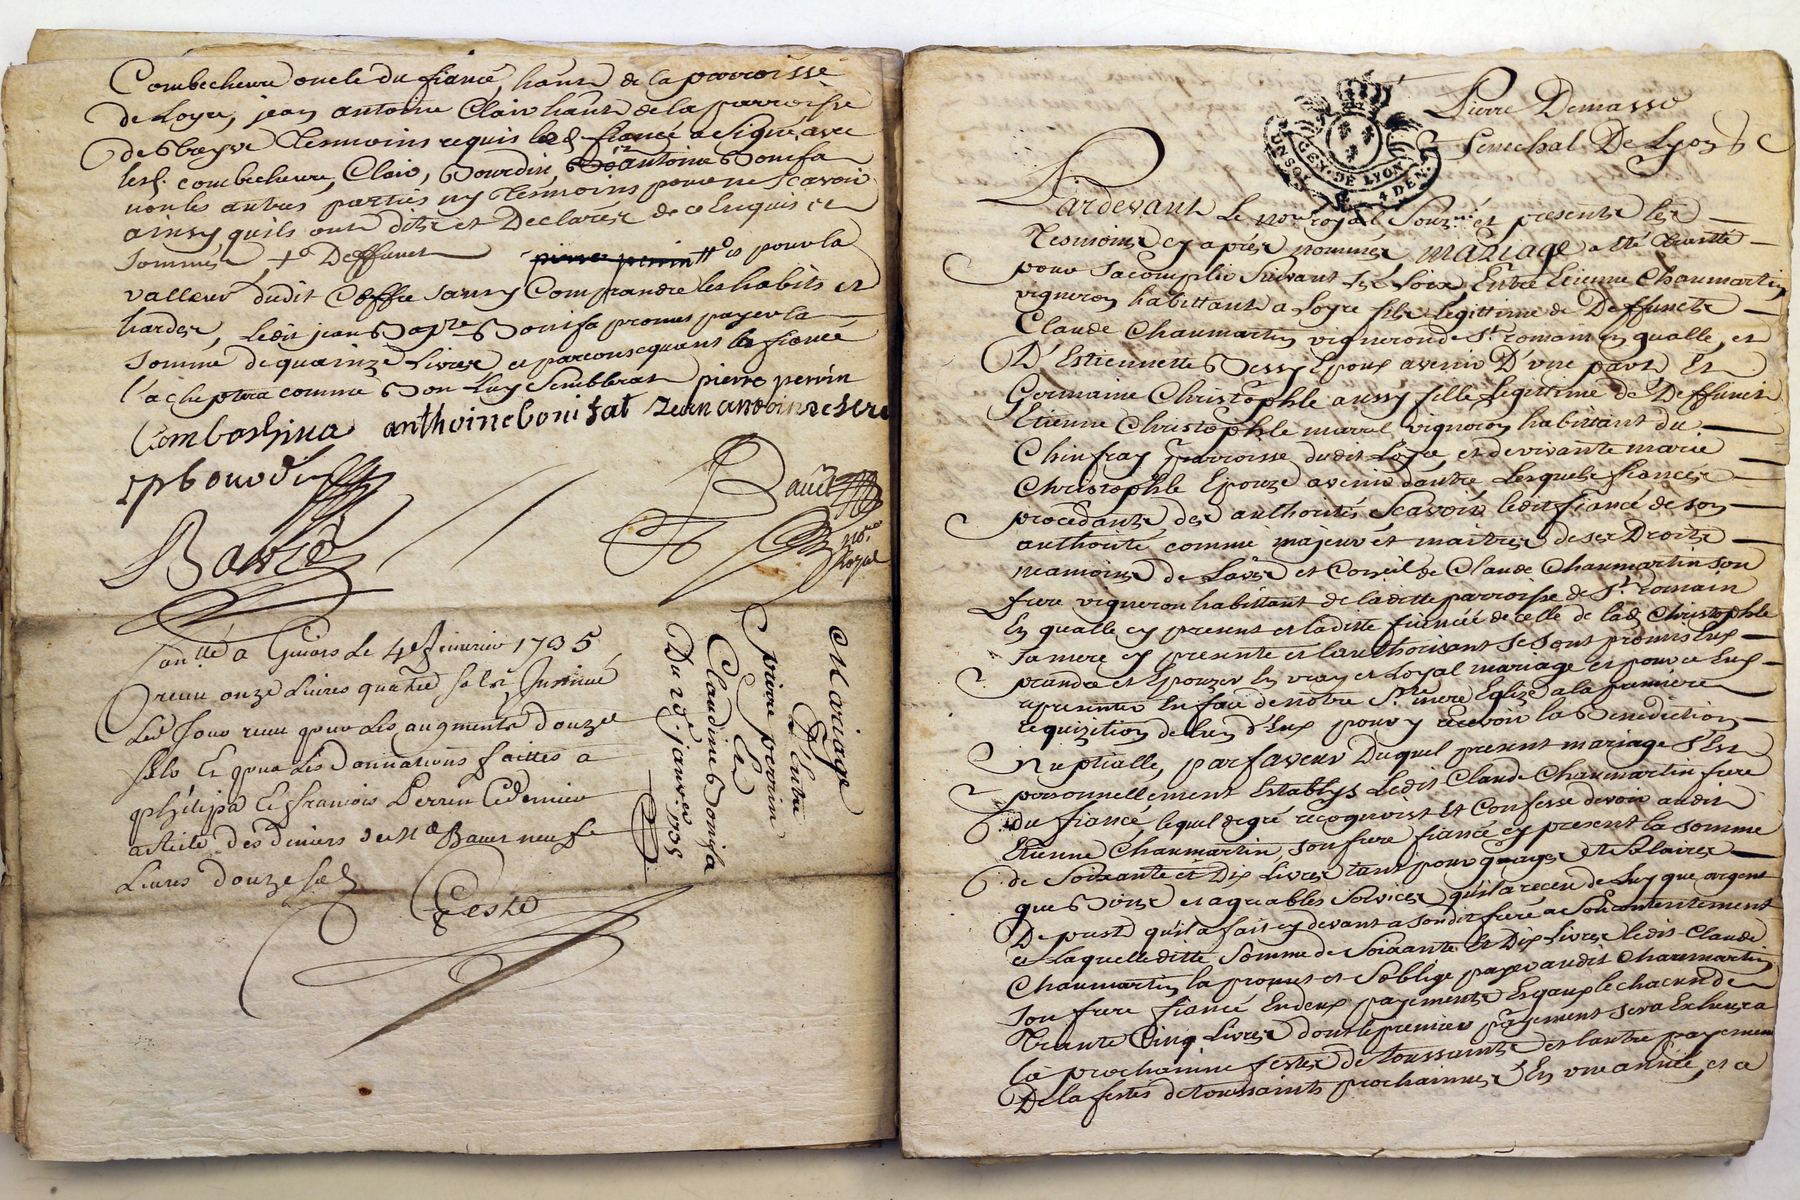 Combecheure oncle du fiancé, hants de la parroisse
de Loyre, jean antoine Clair hant de la parroisse
de tesmoins requis led. fiancé a signé avec
lesd. combecheure, Clair, Bourdin, antoine Bonifa
non les autres parties ny tesmoins pour ne scavoir
ainsy quils ont dit et Declarés de ce Enquis et
sommés, Deffunct pierre perrin pour la
valleur dudit Coffre sans y Comprandre les habits et
hardes, ledit jean Bapte Bonifa promis payer la
somme de quainze livres et par consequant la fiancé
l'acheptera comme Bon luy Semblerat pierre perrin
Combashina anthoine bonifat Jean antoine
Baud
no.re
Royal
à Givors Le 4e feuvrier 1735
receu onze Livres quatre sols Jnsinué
Led Jour receu pour les augments douze
sols Et pour les Donnations faittes a
philipa Et francois Perrin Ce dernier
des deniers neuf
Livres douze sols
Geste
Mariage
Entre
pierre perrin
Et
Claudine Bonifa
Du 20e janvier 1735
Pierre Demasso
Senechal De Lyon
GEN. DE LYON
UN SOL 4 DEN.
Pardevant Le no.re royal Souz.né et presents les
tesmoins cy aprés nommés mariage a été traitté
pour s'acomplir suivant les Loix, Entre Etienne Chaumartin
vigneron habittant a Loyre fils legittime de Deffuncts
Claude Chaumartin vigneron de St romain en qualle, et
D'Estiennette Bessy Epoux avenir D'une part Et
Germaine Christophle aussy fille Legittime de Deffunct
Etienne Christophle vigneron habittant du
Chinfray parroisse dudit Loyre, et de vivante marie
Christophle Epouze avenir d'autre Lesquels fiances
procedants des authorités Scavoir ledit fiancé de son
authorité comme majeur et maitre de ses Droits
neamoins de L'avis et Conseil de Claude Chaumartin son
frere vigneron habittant de laditte parroisse de St romain
En qualle cy present et laditte fiancée de celle de lad Christophle
sa mere cy presente et l'authorisant se sont promis Eux
prandre et Epouzer En vray et Loyal mariage et pour ce Eux
representer En face de notre Ste mere Eglize a la premiere
requizition de lun d'Eux pour y recevoir la Benediction
Nuptialle, par faveur Duquel present mariage s'Est
personnellement Establys Ledit Claude Chaumartin frere
du fiancé lequel de gré recognoist Et Confesse devoir audit
Etienne Chaumartin son frere fiancé cy present la somme
de Soixante et Dix Livres tant pour gages et Salaires
que Bons et agreables Services qu'il a receu de Luy que argent
De prest qu'il a fait cy devant a sondit frere a son contentement
et laquelle ditte Somme de Soixante Et Dix Livres ledit Claude
Chaumartin la promis et s'oblige payer audit Chaumartin
son frere fiancé En deux payements Esgaux le chacun de
trente Cinq Livres dont le premier payement sera Exheura
la prochaine festes de toussaints et lautre payement
De la festes de toussaints prochaines En une année, et a